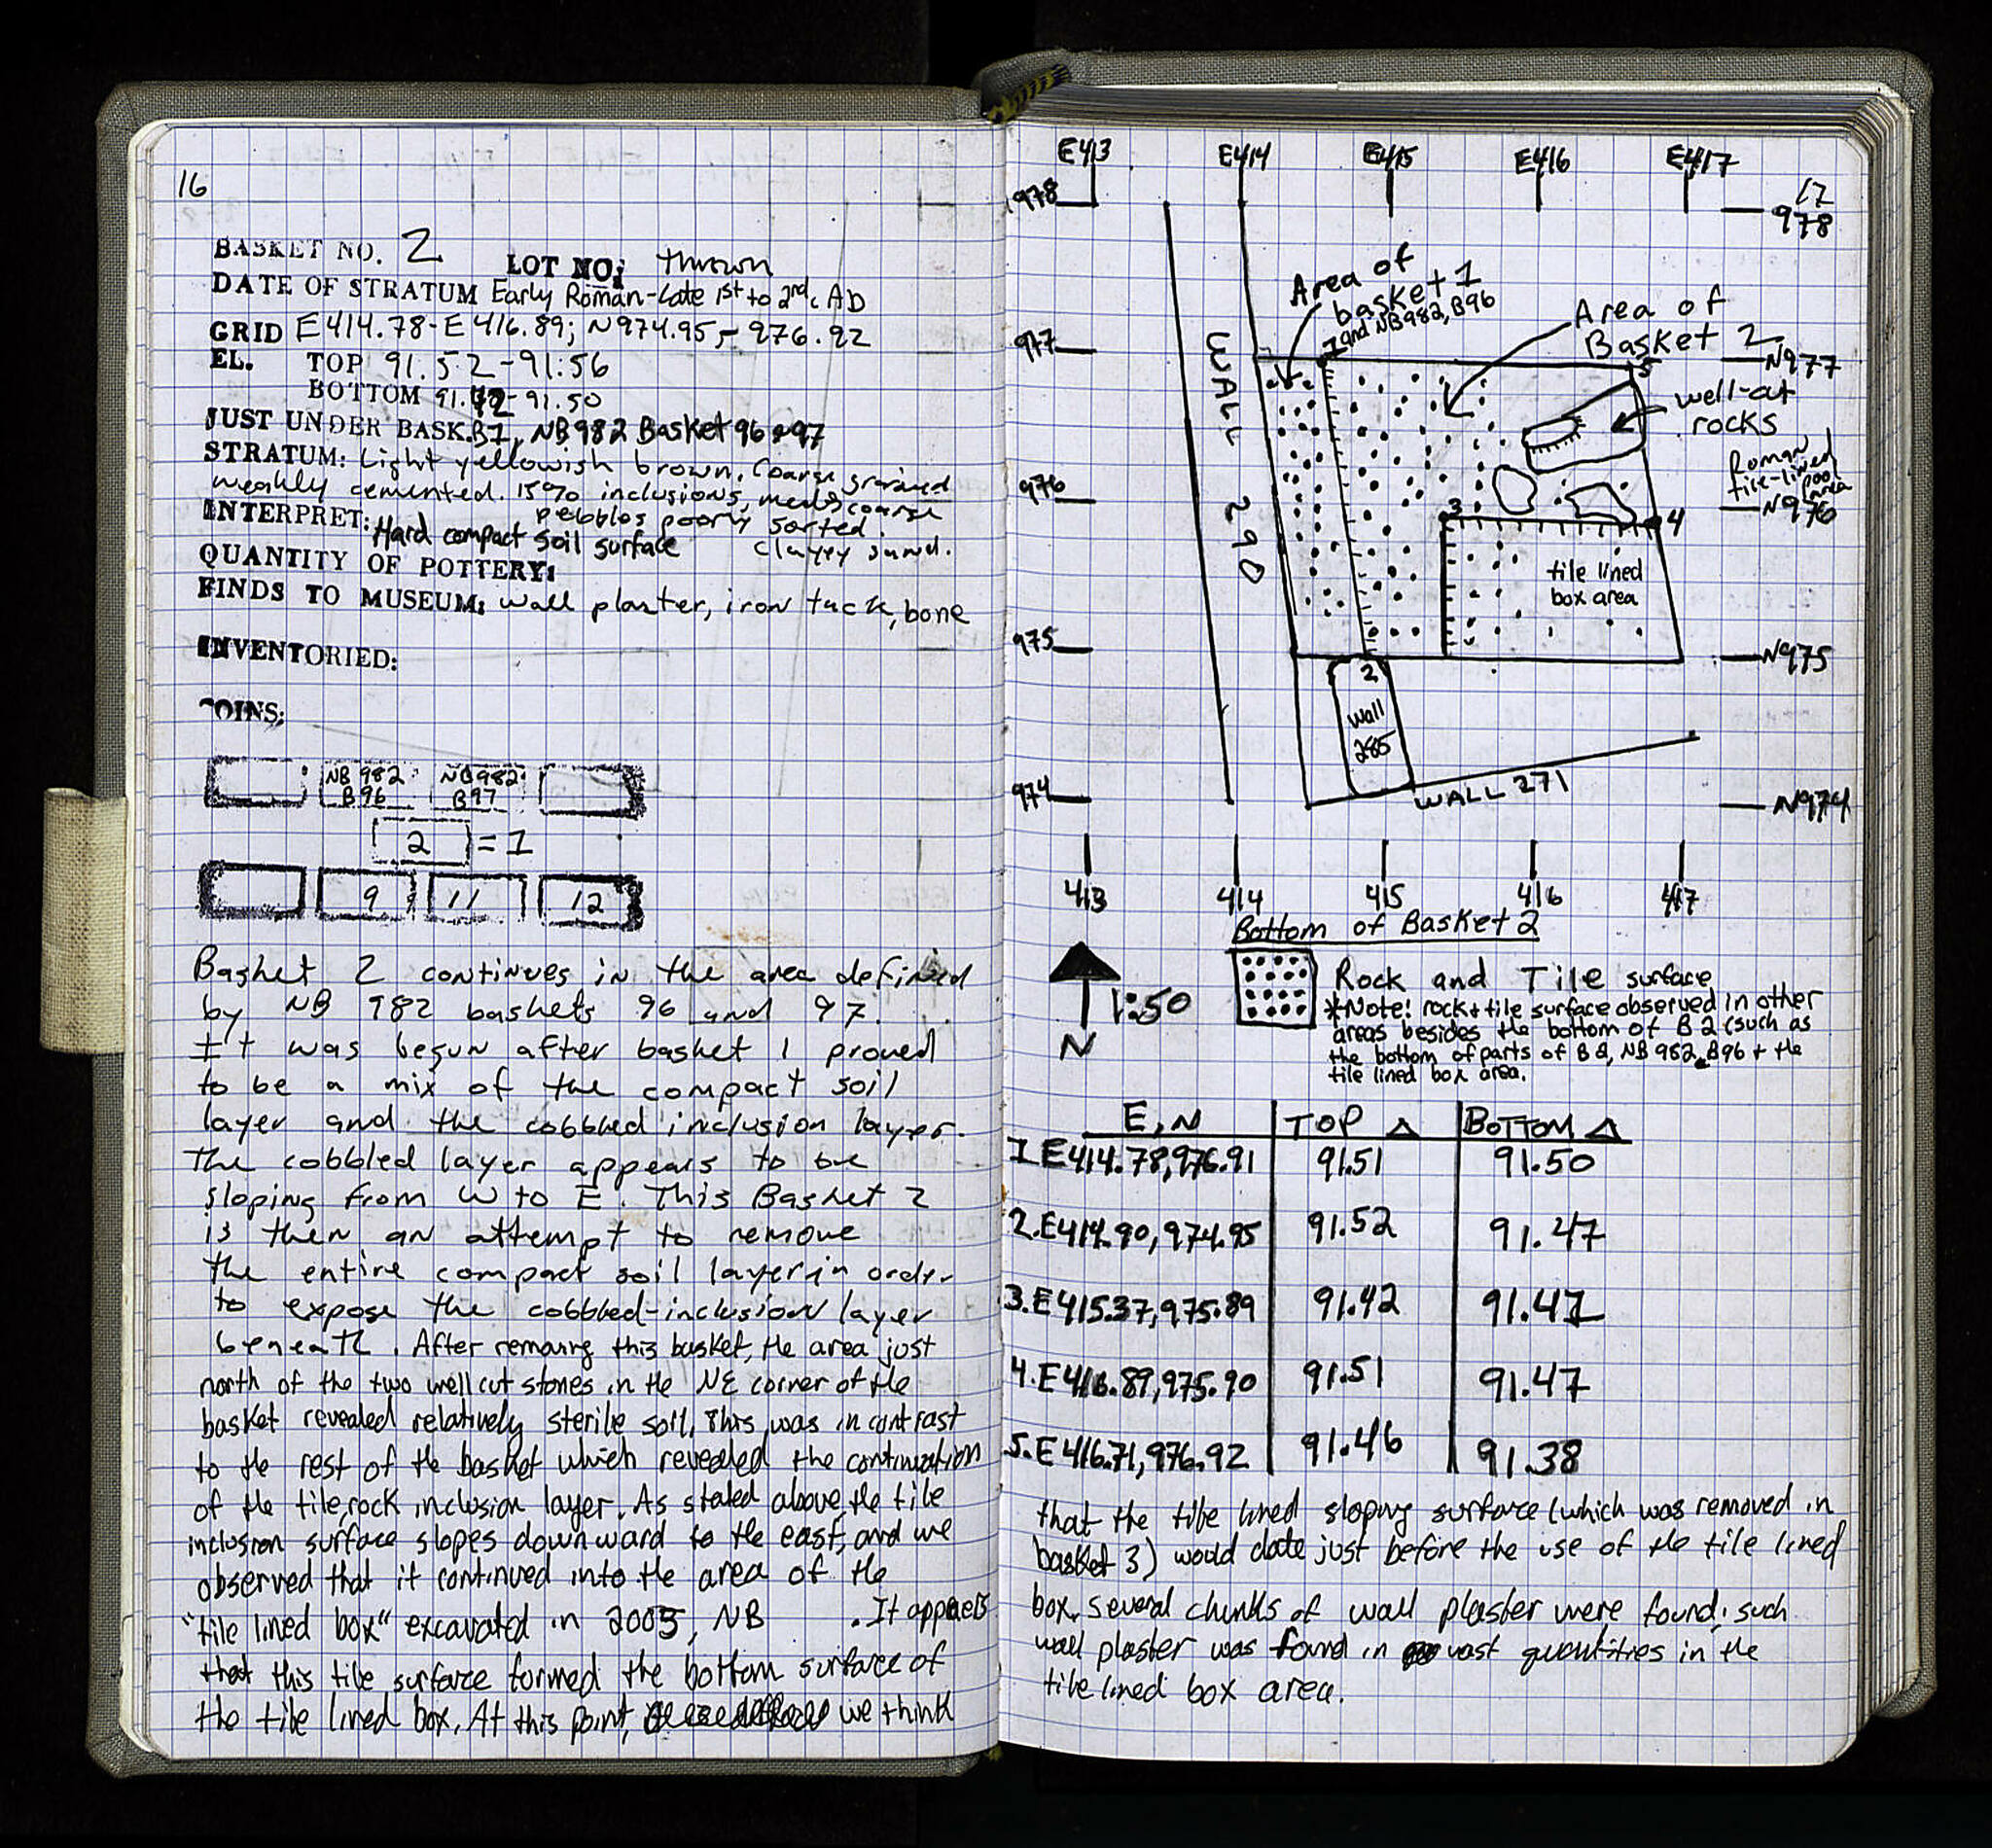 16
BASKET NO. 2 LOT NO: thrown
DATE OF STRATUM Early Roman-Late 1st to 2nd c AD
GRID E414.78-E416.89; N974.95-976.92
EL. TOP 91.52-91.56
BOTTOM 91.42-91.50
JUST UNDER BASK. B1, NB982 Basket 96 & 97
STRATUM: Light yellowish brown. Coarse grained
weakly cemented. 15% inclusions, med & coarse
pebbles poorly sorted
clayey sand.
INTERPRET: Hard compact soil surface
QUANTITY OF POTTERY:
FINDS TO MUSEUM: wall plaster, iron tack, bone
INVENTORIED:
COINS:
NB 982 B96 NB982 B97
2 = 1
9 11 12
Basket 2 continues in the area defined
by NB 982 baskets 96 and 97.
It was begun after basket 1 proved
to be a mix of the compact soil
layer and the cobbled inclusion layer.
The cobbled layer appears to be
sloping from W to E. This Basket 2
is then an attempt to remove
the entire compact soil layer in order
to expose the cobbled-inclusion layer
beneath. After removing this basket, the area just
north of the two well cut stones in the NE corner of the
basket revealed relatively sterile soil, this was in contrast
to the rest of the basket which revealed the continuation
of the tile, rock inclusion layer. As stated above, the tile
inclusion surface slopes downward to the east, and we
observed that it continued into the area of the
"tile lined box" excavated in 2005, NB . It appears
that this tile surface formed the bottom surface of
the tile lined box. At this point, we think
17
E413 E414 E415 E416 E417
978 978
Area of
basket 1
and NB982, B96
Area of
Basket 2
977 N977
1 5
WALL 290
well-cut
rocks
Roman
tile-lined
pool
area
976 N976
3 4
tile lined
box area
975 N975
2
Wall
285
WALL 271
974 N974
413 414 415 416 417
Bottom of Basket 2
N 1:50
Rock and Tile surface
*Note: rock + tile surface observed in other
areas besides the bottom of B2 (such as
the bottom of parts of B2, NB 982, B96 + the
tile lined box area.
E, N TOP △ BOTTOM △
1. E414.78, 976.91 91.51 91.50
2. E414.90, 974.95 91.52 91.47
3. E415.37, 975.89 91.42 91.41
4. E416.89, 975.90 91.51 91.47
5. E416.71, 976.92 91.46 91.38
that the tile lined sloping surface (which was removed in
basket 3) would date just before the use of the tile lined
box. Several chunks of wall plaster were found; such
wall plaster was found in vast quantities in the
tile lined box area.